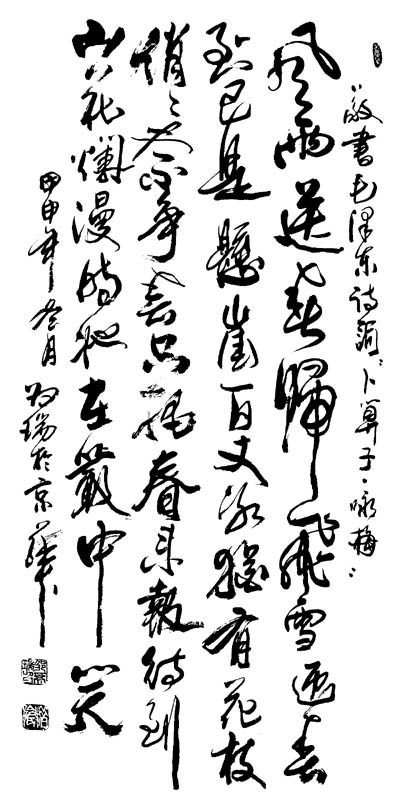 敬書毛泽东诗詞：卜算子·咏梅
风雨送春歸飛雪迎春
到已是懸崖百丈冰猶有花枝
俏俏不争春只把春来報待到
山花爛漫時她在叢中笑
甲申年冬月 瑞於京華